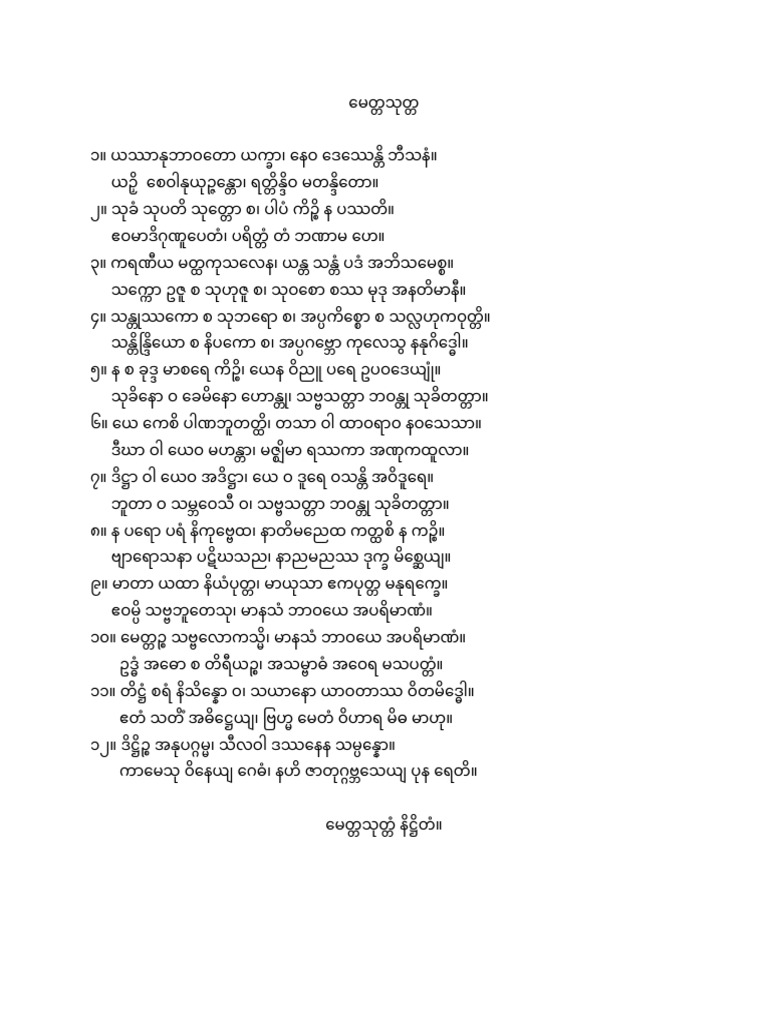 မေတ္တသုတ္တ
၁။ ယဿာနုဘာဝတော ယက္ခာ၊ နေဝ ဒေဿေန္တိ ဘီသနံ။
ယဉှိ စေဝါနုယုဉ္ဇန္တော၊ ရတ္တိန္ဒိဝ မတန္ဒိတော။
၂။ သုခံ သုပတိ သုတ္တော စ၊ ပါပံ ကိဉ္စိ န ပဿတိ။
ဧဝမာဒိဂုဏူပေတံ၊ ပရိတ္တံ တံ ဘဏာမ ဟေ။
၃။ ကရဏီယ မတ္ထကုသလေန၊ ယန္တ သန္တံ ပဒံ အဘိသမေစ္စ။
သက္ကော ဥဇူ စ သုဟုဇူ စ၊ သုဝစော စဿ မုဒု အနတိမာနီ။
၄။ သန္တုဿကော စ သုဘရော စ၊ အပ္ပကိစ္စော စ သလ္လဟုကဝုတ္တိ။
သန္တိန္ဒြိယော စ နိပကော စ၊ အပ္ပဂဗ္ဘော ကုလေသွ နနုဂိဒ္ဓေါ။
၅။ န စ ခုဒ္ဒ မာစရေ ကိဉ္စိ၊ ယေန ဝိညူ ပရေ ဥပဝဒေယျုံ။
သုခိနော ဝ ခေမိနော ဟောန္တု၊ သဗ္ဗသတ္တာ ဘဝန္တု သုခိတတ္တာ။
၆။ ယေ ကေစိ ပါဏဘူတတ္ထိ၊ တသာ ဝါ ထာဝရာဝ နဝသေသာ။
ဒီဃာ ဝါ ယေဝ မဟန္တာ၊ မဇ္ဈိမာ ရဿကာ အဏုကထူလာ။
၇။ ဒိဋ္ဌာ ဝါ ယေဝ အဒိဋ္ဌာ၊ ယေ ဝ ဒူရေ ဝသန္တိ အဝိဒူရေ။
ဘူတာ ဝ သမ္ဘဝေသီ ဝ၊ သဗ္ဗသတ္တာ ဘဝန္တု သုခိတတ္တာ။
၈။ န ပရော ပရံ နိကုဗ္ဗေထ၊ နာတိမညေထ ကတ္ထစိ န ကဉ္စိ။
ဗျာရောသနာ ပဋိဃသည၊ နာညမညဿ ဒုက္ခ မိစ္ဆေယျ။
၉။ မာတာ ယထာ နိယံပုတ္တ၊ မာယုသာ ဧကပုတ္တ မနုရက္ခေ။
ဧဝမ္ပိ သဗ္ဗဘူတေသု၊ မာနသံ ဘာဝယေ အပရိမာဏံ။
၁၀။ မေတ္တဉ္စ သဗ္ဗလောကသ္မိ၊ မာနသံ ဘာဝယေ အပရိမာဏံ။
ဥဒ္ဓံ အဓော စ တိရီယဉ္စ၊ အသမ္ဗာဓံ အဝေရ မသပတ္တံ။
၁၁။ တိဋ္ဌံ စရံ နိသိန္နော ဝ၊ သယာနော ယာဝတာဿ ဝိတမိဒ္ဓေါ။
ဧတံ သတိံ အဓိဋ္ဌေယျ၊ ဗြဟ္မ မေတံ ဝိဟာရ မိဓ မာဟု။
၁၂။ ဒိဋ္ဌိဉ္စ အနုပဂ္ဂမ္မ၊ သီလဝါ ဒဿနေန သမ္ပန္နော။
ကာမေသု ဝိနေယျ ဂေဓံ၊ နဟိ ဇာတုဂ္ဂဗ္ဘသေယျ ပုန ရေတိ။
မေတ္တသုတ္တံ နိဋ္ဌိတံ။